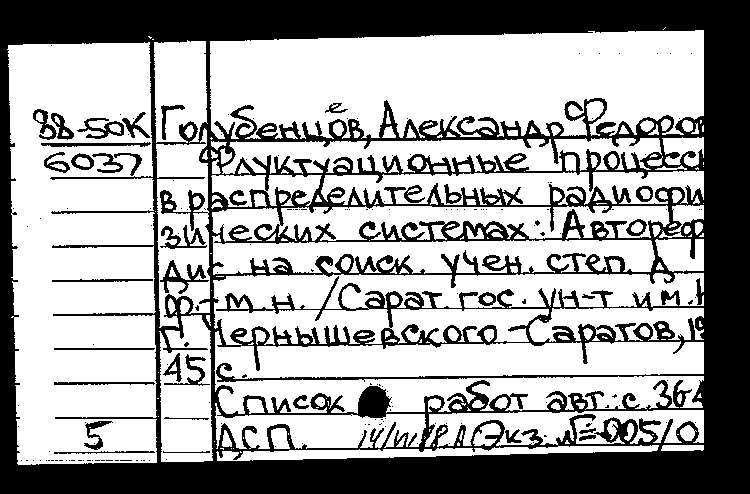 88-50К Голубенцев, Александр Федоров
6037 Флуктуационные процесс
в распределительных радиофи
зических системах: Автореф
дис. на соиск. учен. степ. д
ф.-м.н. / Сарат. гос. ун-т им. Н
Г. Чернышевского. - Саратов, 19
45 с.
Список работ авт.: с. 364
5 ДСП. Экз. № 005/0